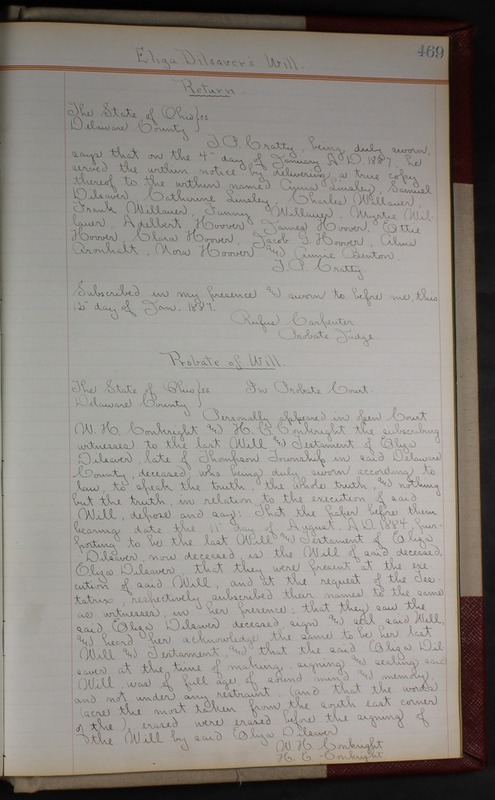 469
Eliza Dilsaver's Will.
Return
The State of Ohio } ss
Delaware County }
J.P. Cratty, being duly sworn,
says that on the 4" day of January A.D. 1887 he
served the within notice by delivering a true copy
thereof to the within named Linsley, Samuel
Dilsaver, Catharine Linsley, Charles Willauer,
Frank Willauer, Fanny Willauer, Myrtie Wil-
lauer, Adelbert Hoover, James Hoover, Ottie
Hoover, Clara Hoover, Jacob G. Hoover, Alma
Aronhalt, Nora Hoover & Annie Benton.
J.P. Cratty
Subscribed in my presence & sworn to before me, this
15" day of Jan. 1887.
Rufus Carpenter
Probate Judge.
Probate of Will.
The State of Ohio } ss In Probate Court.
Delaware County }
Personally appeared in open Court
W. H. Conkright & H. C. Conkright the subscribing
witnesses to the last Will & Testament of Eliza
Dilsaver, late of Thompson Township in said Delaware
County, deceased, who being duly sworn according to
law to speak the truth, the whole truth, & nothing
but the truth, in relation to the execution of said
Will, depose and say: That the paper before them
bearing date the 11" day of August A.D. 1884 pur-
porting to be the last Will & Testament of Eliza
Dilsaver, now deceased, is the Will of said deceased,
Eliza Dilsaver, that they were present at the exe-
cution of said Will, and at the request of the Tes-
tatrix, respectively subscribed their names to the same
as witnesses, in her presence; that they saw the
said Eliza Dilsaver deceased, sign & seal said Will,
& heard her acknowledge the same to be her last
Will & Testament, & that the said Eliza Dil-
saver at the time of making, signing & sealing said
Will, was of full age of sound mind & memory,
and not under any restraint, (and that the words
(acre the most taken from the south east corner
of the), erased were erased before the signing of
the Will by said Eliza Dilsaver
W. H. Conkright
H. C. Conkright